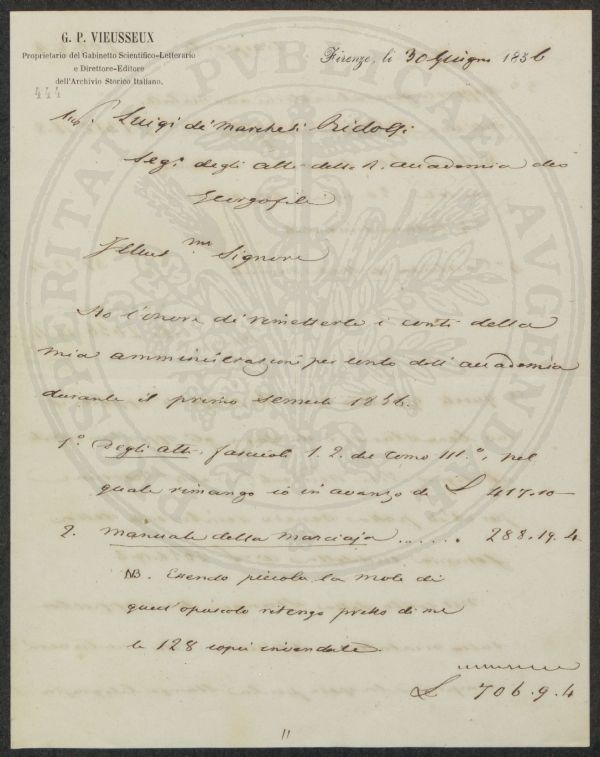 G. P. VIEUSSEUX
Proprietario del Gabinetto Scientifico-Letterario
e Direttore-Editore
dell'Archivio Storico Italiano.
444
Firenze, li 30 Giugno 1856
Luigi de' Marchesi Ridolfi
Segr. degli Atti della R. Accademia dei
Georgofili
Illust.mo Signore
Ho l'onore di rimetterle i conti della
mia amministrazione per conto dell'Accademia
durante il primo semestre 1856.
1.º Degli Atti, fascicoli 1. 2. del tomo III.º, nel
quale rimango io in avanzo di £ 417.10 —
2. Manuale della Marciaja ...... 288.19.4
NB. Essendo piccola la mole di
quest'opuscolo ritengo presso di me
le 128 copie invendute.
£ 706.9.4
11
PROSPERITATI PUBLICAE AUGENDAE